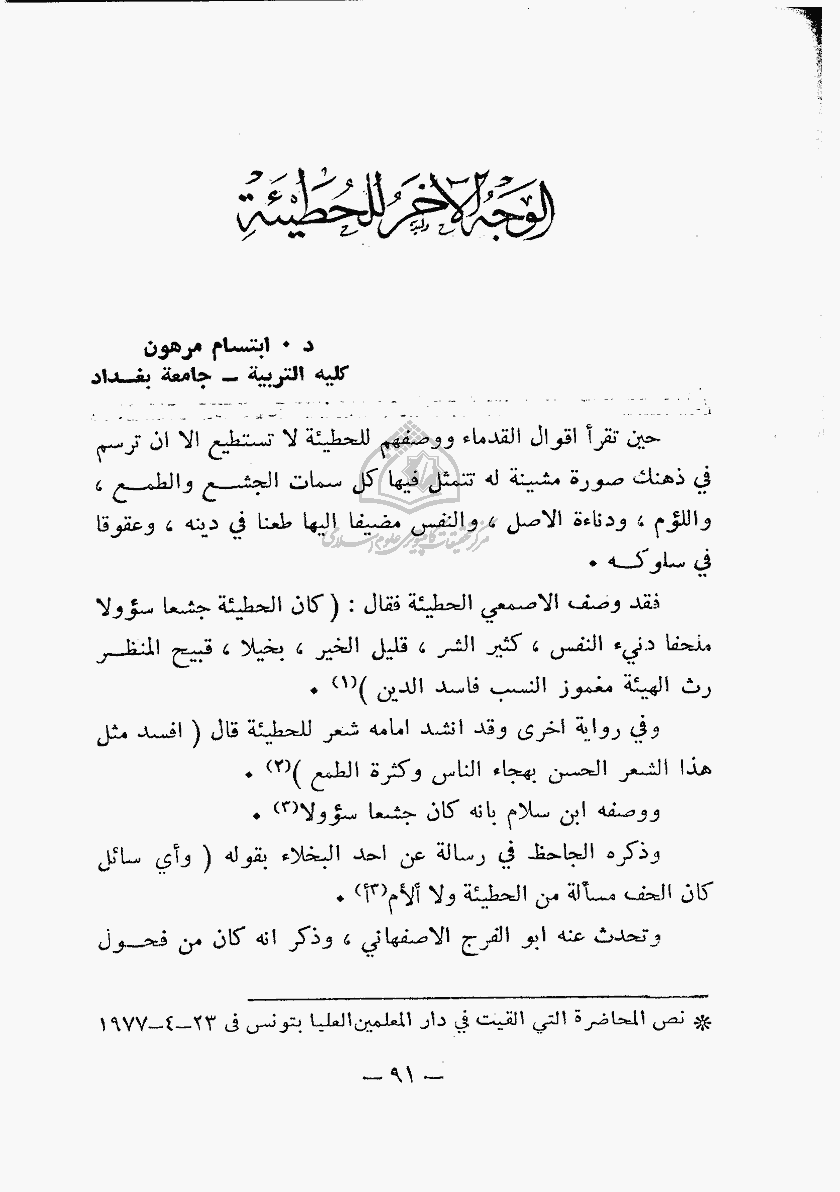 الوجه الآخر للحطيئة
د ٠ ابتسام مرهون
كليه التربية ــ جامعة بغـــداد
حين تقرأ اقوال القدماء ووصفهم للحطيئة لا تستطيع الا ان ترسم
في ذهنك صورة مشينة له تتمثل فيها كل سمات الجشـــع والطمـــع ،
واللؤم ، ودناءة الاصل ، والنفس مضيفا اليها طعنا في دينه ، وعقوقا
في سلوكـــه ٠
فقد وصف الاصمعي الحطيئة فقال : ( كان الحطيئة جشعا سؤولا
ملحفا دنيء النفس ، كثير الشر ، قليل الخير ، بخيلا ، قبيح المنظـــر
رث الهيئة مغموز النسب فاسد الدين )(١) ٠
وفي رواية اخرى وقد انشد امامه شعر للحطيئة قال ( افسد مثل
هذا الشعر الحسن بهجاء الناس وكثرة الطمع )(٢) ٠
ووصفه ابن سلام بانه كان جشعا سؤولا(٣) ٠
وذكره الجاحظ في رسالة عن احد البخلاء بقوله ( وأي سائل
كان الحف مسألة من الحطيئة ولا ألأم(٣أ) ٠
وتحدث عنه ابو الفرج الاصفهاني ، وذكر انه كان من فحـــول
※ نص المحاضرة التي القيت في دار المعلمين العليا بتونس فى ٢٣ــ٤ــ١٩٧٧
ــ ٩١ ــ
مرکز تحقیقات کامپیوتری علوم اسلامی